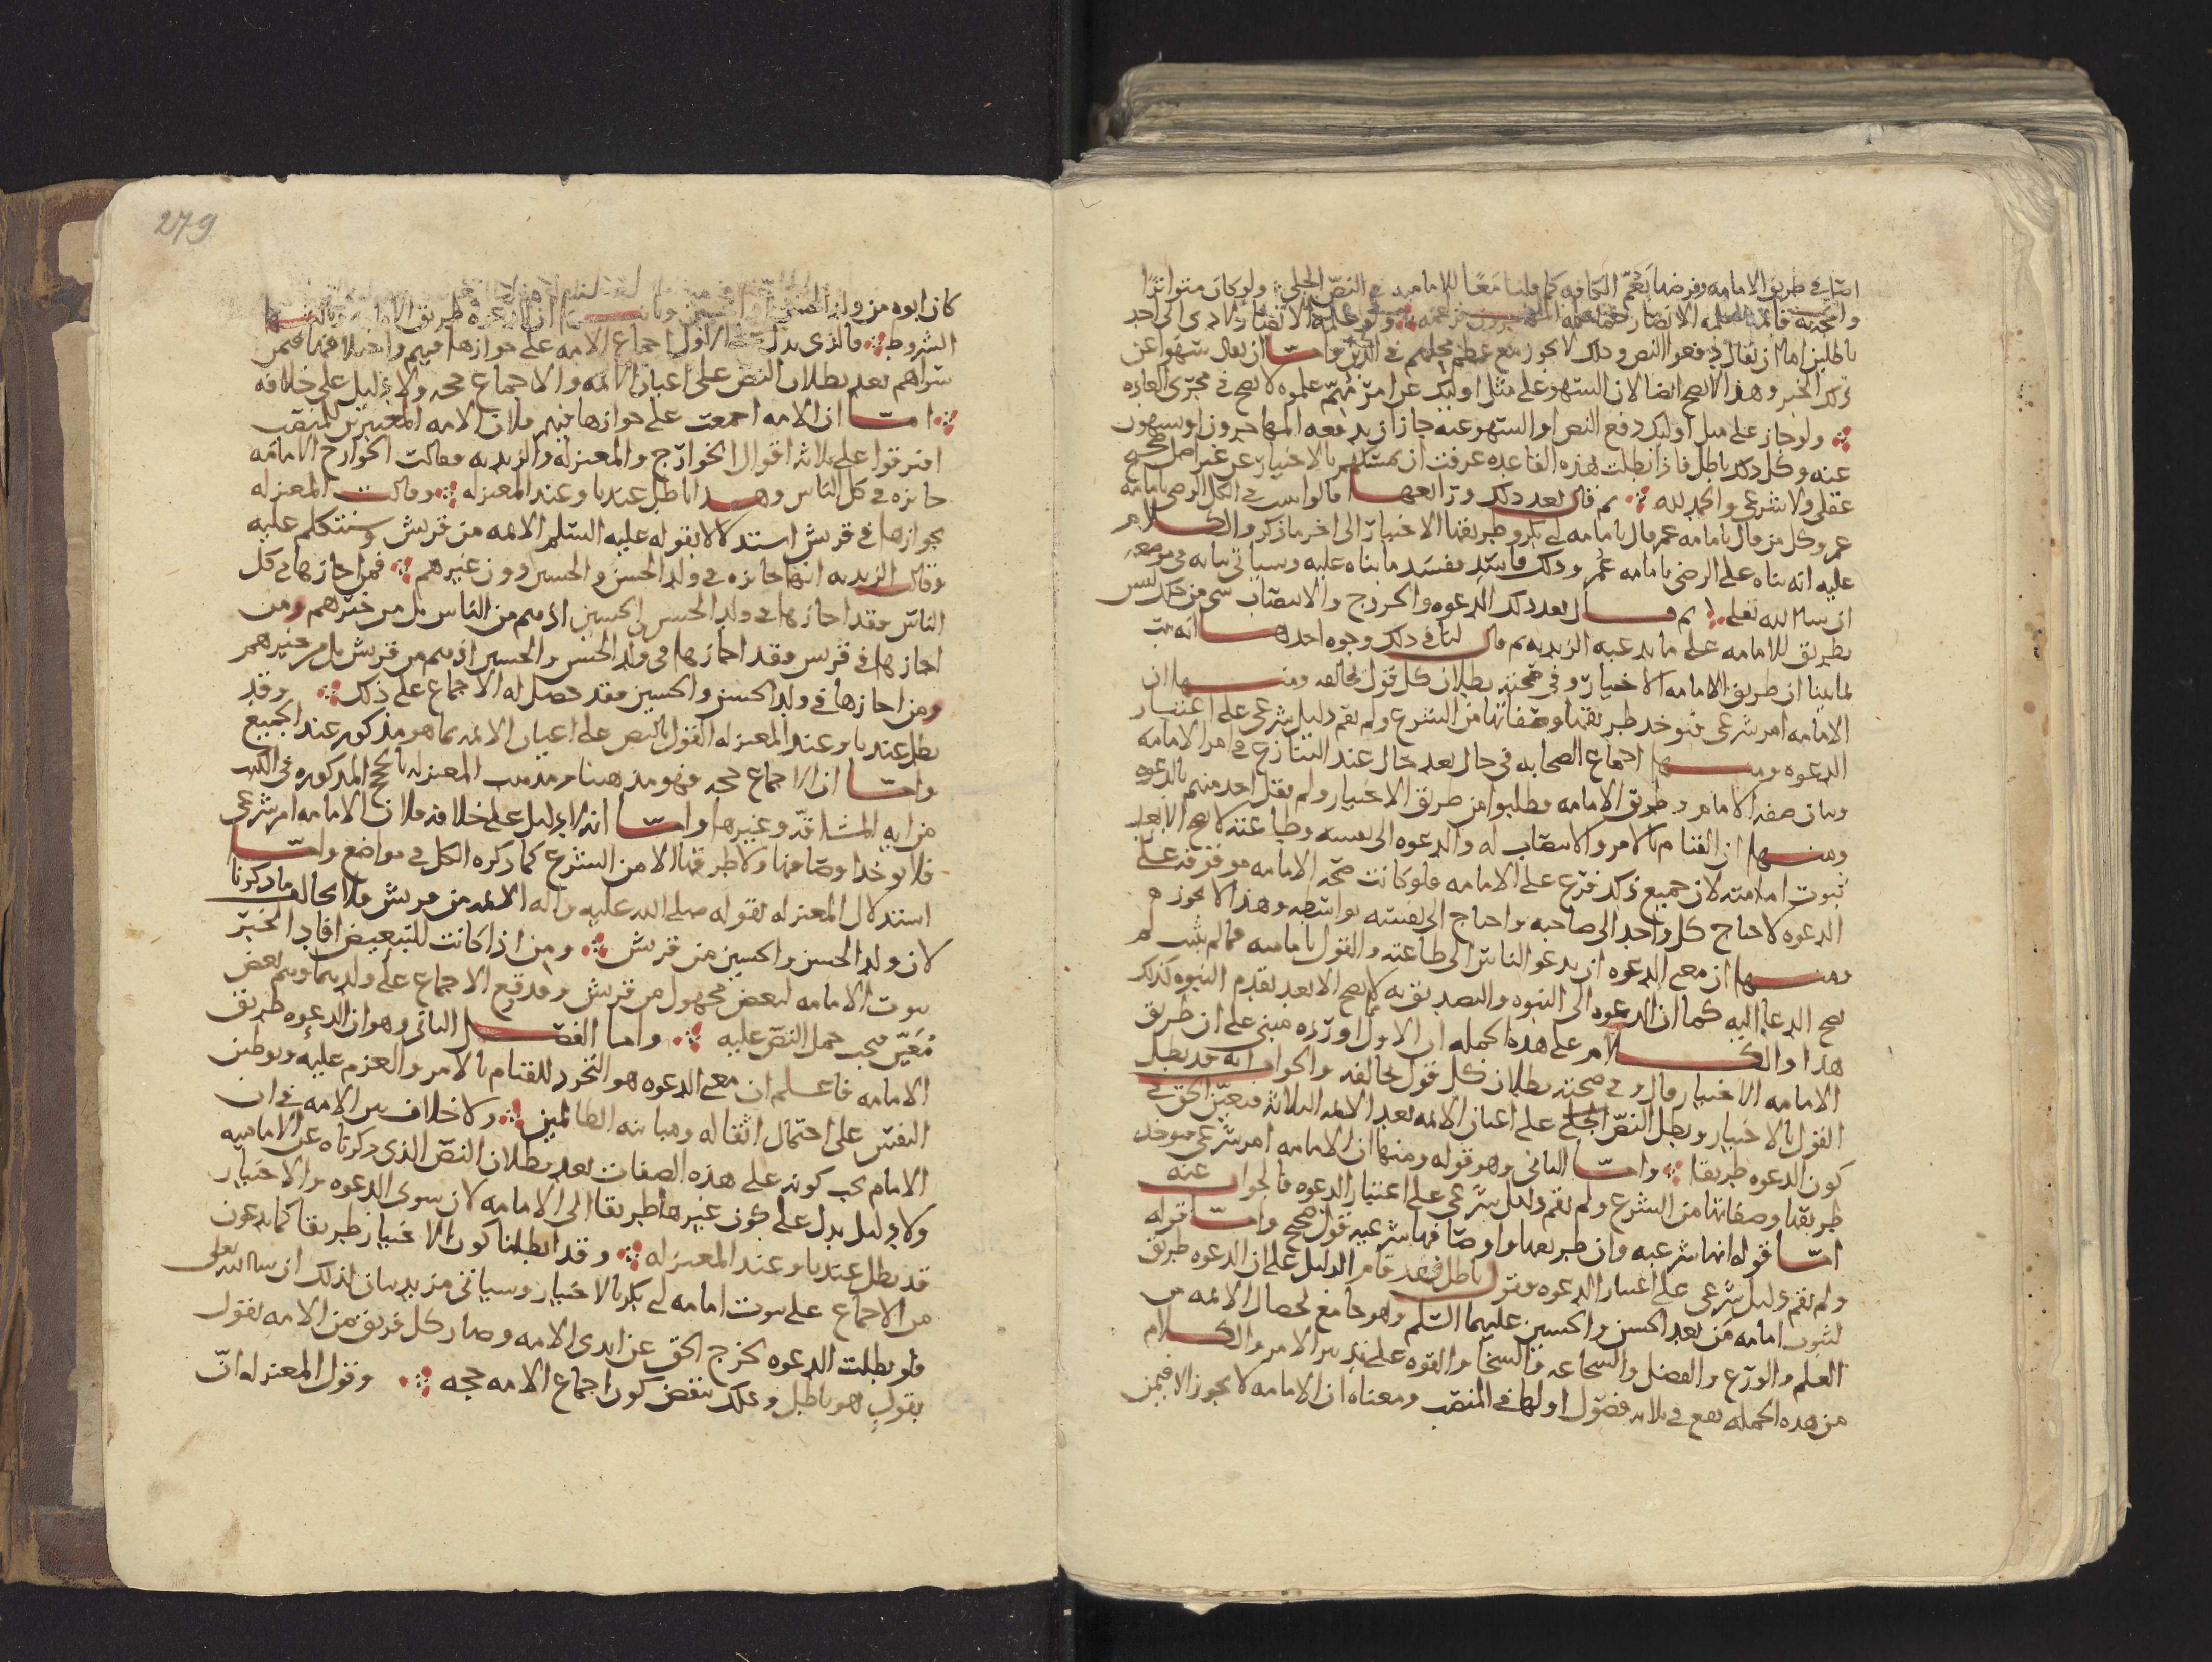 في طريق الامامه وفرضها يعم الكافه كما قلنا معًا للاماميه في النص الجلي ولو كان متواترًا
باطلين اما ان يقال دفعوا النص وذلك لا يجوز مع عظم محلهم في الدين واما ان يقال سهوا عن
ذلك الخبر وهذا لا يصح ايضا لان السهو على مثل اوليك عن امر مهم علموه لا يصح في مجرى العاده
ولو جاز على مثل اوليك دفع النص او السهو عنه جاز ان يدفعه المهاجرون او يسهون
عنه وكل ذلك باطل فاذا بطلت هذه القاعده عرفت ان تمسكهم بالاختيار عن غير اصل صحيح
عقلي ولا شرعي والحمد لله ثم قال بعد ذلك ورابعها قالوا ليس في الكل الرضى بامامه
عمر وكل من قال بامامه عمر قال بامامه ابي بكر وطريقها الاختيار الى اخر ما ذكر والكلام
عليه انه بناه على الرضى بامامه عمر وذلك فاسد ففسد ما بناه عليه وسياتي بيانه في موضعه
ان شا الله تعلى ثم قال بعد ذلك الدعوه والخروج والانتصاب شي من ذلك ليس
بطريق للامامه على ما يدعيه الزيديه ثم قال لنا في ذلك وجوه احدها انه ثبت
لما بينا ان طريق الامامه الاختيار وفي صحته بطلان كل قول يخالفه ومنها ان
الامامه امر شرعي فتوخذ طريقها وصفاتها من الشرع ولم يقم دليل شرعي على اعتبار
الدعوه ومنها اجماع الصحابه في حال بعد حال عند التنازع في امر الامامه
وبيان صفه الامام وطريق الامامه وطلبوا من طريق الاختيار ولم يقل احد منهم بالدعوه
ومنها ان القيام بالامر والانتصاب له والدعوه الى نفسه وطاعته لا يصح الا بعد
ثبوت امامته لان جميع ذلك فرع على الامامه فلو كانت صحه الامامه موقوفه على
الدعوه لاحتاج كل واحد الى صاحبه واحتاج الى نفسه بواسطه وهذا لا يجوز
ومنها ان معنى الدعوه ان يدعو الناس الى طاعته والقول بامامته فما لم يثبت لم
يصح الدعا اليه كما ان الدعوه الى النبوه والتصديق به لا يصح الا بعد تقدم النبوه كذلك
هذا والكلام على هذه الجمله ان الاول اورده مبني على ان طريق
الامامه الاختيار قال وفي صحته بطلان كل قول يخالفه والجواب انه قد بطل
القول بالاختيار وبطل النص الجلي على اعيان الايمه بعد الايمه الثلاثه فتعين الحق في
كون الدعوه طريقا واما الثاني وهو قوله ومنها ان الامامه امر شرعي فتوخذ
طريقها وصفاتها من الشرع ولم يقم دليل شرعي على اعتبار الدعوه فالجواب عنه
اما قوله انها شرعيه وان طريقها واوصافها شرعيه فقول صحيح واما قوله
ولم يقم دليل شرعي على اعتبار الدعوه فقول باطل فقد قام الدليل على ان الدعوه طريق
لثبوت امامه من بعد الحسن والحسين عليهما السلم وهو جامع لخصال الايمه من
العلم والورع والفضل والشجاعه والسخا والقوه على تدبير الامر والكلام
من هذه الجمله يقع في ثلاثه فصول اولها في المنصب ومعناه ان الامامه لا يجوز الا فيمن
279
كان ابوه من ولد الحسن او الحسين وثانيها ان الدعوه طريق الامامه وثالثها
الشروط فالذي يدل على الاول اجماع الامه على جوازها فيهم واختلافها فيمن
سواهم بعد بطلان النص على اعيان الايمه والاجماع حجه ولا دليل على خلافه
اما ان الامه اجمعت على جوازها فيهم فلان الامه المعتبرين للمنصب
افترقوا على ثلاثه اقوال الخوارج والمعتزله والزيديه فقالت الخوارج الامامه
جايزه في كل الناس وهذا باطل عندنا وعند المعتزله وقالت المعتزله
بجوازها في قريش استدلالا بقوله عليه السلم الايمه من قريش وسنتكلم عليه
وقالت الزيديه انها جايزه في ولد الحسن والحسين دون غيرهم فمن اجازها في كل
الناس فقد اجازها في ولد الحسن والحسين اذ هم من الناس بل من خيرهم ومن
اجازها في قريش فقد اجازها في ولد الحسن والحسين اذ هم من قريش بل من خيرهم
ومن اجازها في ولد الحسن والحسين فقد حصل له الاجماع على ذلك وقد
بطل عندنا وعند المعتزله القول بالنص على اعيان الايمه بما هو مذكور عند الجميع
واما ان الاجماع حجه فهو مذهبنا ومذهب المعتزله بالحجج المذكوره في الكتب
من ايه المشاقه وغيرها واما انه لا دليل على خلافه فلان الامامه امر شرعي
فلا يوخذ اوصافها ولا طريقها الا من الشرع كما ذكره الكل في مواضع واما
استدلال المعتزله بقوله صلى الله عليه واله الايمه من قريش فلا يخالف ما ذكرنا
لان ولد الحسن والحسين من قريش ومن اذا كانت للتبعيض افاد الخبر
ثبوت الامامه لبعض مجهول من قريش وقد وقع الاجماع على ولديهما وهم بعض
مُعَيّن فيجب حمل النص عليه واما الفصل الثاني وهو ان الدعوه طريق
الامامه فاعلم ان معنى الدعوه هو التجرد للقيام بالامر والعزم عليه وتوطين
النفس على احتمال اثقاله ومباينه الظالمين ولا خلاف بين الامه في ان
الامام يجب كونه على هذه الصفات بعد بطلان النص الذي ذكرناه عن الاماميه
ولا دليل يدل على كون غيرها طريقا الى الامامه لان سوى الدعوه والاختيار
قد بطل عندنا وعند المعتزله وقد ابطلنا كون الاختيار طريقا كما يدعون
من الاجماع على ثبوت امامه ابي بكر بالاختيار وسياتي مزيد بيان لذلك ان شا الله تعلى
فلو بطلت الدعوه لخرج الحق عن ايدي الامه وصار كل فريق من الامه يقول
بقول هو باطل وذلك ينقض كون اجماع الامه حجه وقول المعتزله ان